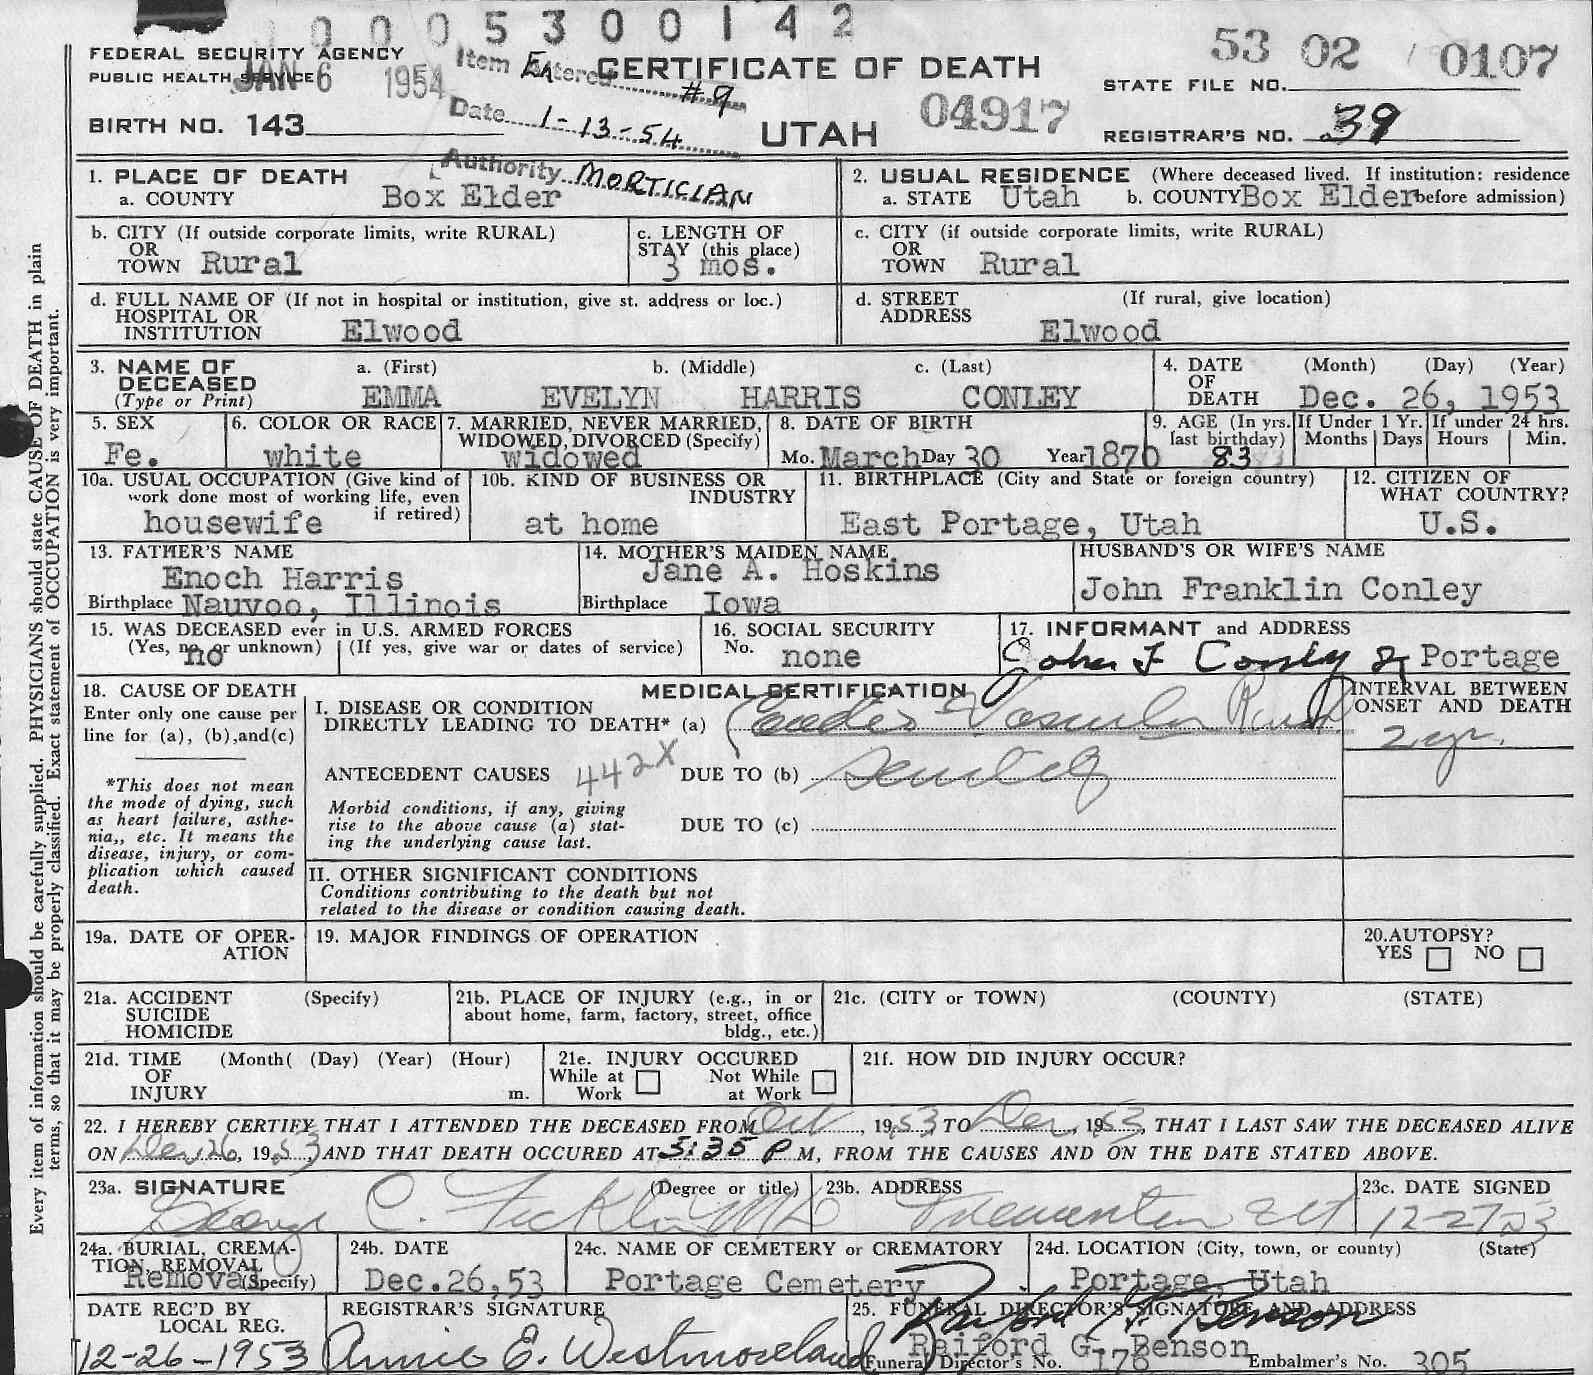 0005300142
FEDERAL SECURITY AGENCY
PUBLIC HEALTH SERVICE
JAN 6 1954
Item Entered #9
Date 1-13-54
Authority MORTICIAN
CERTIFICATE OF DEATH
UTAH
04917
53 02 0107
STATE FILE NO.
BIRTH NO. 143
REGISTRAR'S NO. 39
1. PLACE OF DEATH
a. COUNTY Box Elder
2. USUAL RESIDENCE (Where deceased lived. If institution: residence before admission)
a. STATE Utah b. COUNTY Box Elder
b. CITY (If outside corporate limits, write RURAL)
OR
TOWN Rural
c. LENGTH OF
STAY (this place)
3 mos.
c. CITY (if outside corporate limits, write RURAL)
OR
TOWN Rural
d. FULL NAME OF (If not in hospital or institution, give st. address or loc.)
HOSPITAL OR
INSTITUTION Elwood
d. STREET (If rural, give location)
ADDRESS
Elwood
3. NAME OF
DECEASED
(Type or Print)
a. (First) b. (Middle) c. (Last)
EMMA EVELYN HARRIS CONLEY
4. DATE
OF
DEATH
(Month) (Day) (Year)
Dec. 26, 1953
5. SEX
Fe.
6. COLOR OR RACE
white
7. MARRIED, NEVER MARRIED,
WIDOWED, DIVORCED (Specify)
widowed
8. DATE OF BIRTH
Mo. March Day 30 Year 1870
9. AGE (In yrs. last birthday)
83
If Under 1 Yr.
Months Days
If under 24 hrs.
Hours Min.
10a. USUAL OCCUPATION (Give kind of
work done most of working life, even
if retired)
housewife
10b. KIND OF BUSINESS OR
INDUSTRY
at home
11. BIRTHPLACE (City and State or foreign country)
East Portage, Utah
12. CITIZEN OF
WHAT COUNTRY?
U.S.
13. FATHER'S NAME
Enoch Harris
Birthplace Nauvoo, Illinois
14. MOTHER'S MAIDEN NAME
Jane A. Hoskins
Birthplace Iowa
HUSBAND'S OR WIFE'S NAME
John Franklin Conley
15. WAS DECEASED ever in U.S. ARMED FORCES
(Yes, no or unknown) (If yes, give war or dates of service)
no
16. SOCIAL SECURITY
No.
none
17. INFORMANT and ADDRESS
John F Conley Jr Portage
18. CAUSE OF DEATH
Enter only one cause per
line for (a), (b),and(c)
*This does not mean
the mode of dying, such
as heart failure, asthe-
nia,, etc. It means the
disease, injury, or com-
plication which caused
death.
MEDICAL CERTIFICATION
I. DISEASE OR CONDITION
DIRECTLY LEADING TO DEATH* (a) Vascular
INTERVAL BETWEEN
ONSET AND DEATH
2 yr.
ANTECEDENT CAUSES 442X DUE TO (b)
Morbid conditions, if any, giving
rise to the above cause (a) stat-
ing the underlying cause last.
DUE TO (c)
II. OTHER SIGNIFICANT CONDITIONS
Conditions contributing to the death but not
related to the disease or condition causing death.
19a. DATE OF OPER-
ATION
19. MAJOR FINDINGS OF OPERATION
20.AUTOPSY?
YES NO
21a. ACCIDENT (Specify)
SUICIDE
HOMICIDE
21b. PLACE OF INJURY (e.g., in or
about home, farm, factory, street, office
bldg., etc.)
21c. (CITY or TOWN) (COUNTY) (STATE)
21d. TIME (Month( (Day) (Year) (Hour)
OF
INJURY m.
21e. INJURY OCCURED
While at Work Not While at Work
21f. HOW DID INJURY OCCUR?
22. I HEREBY CERTIFY THAT I ATTENDED THE DECEASED FROM Oct, 1953, TO Dec, 1953, THAT I LAST SAW THE DECEASED ALIVE
ON Dec, 26, 1953 AND THAT DEATH OCCURED AT 5:35 P M, FROM THE CAUSES AND ON THE DATE STATED ABOVE.
23a. SIGNATURE (Degree or title)
George C. Ficklin MD
23b. ADDRESS
Tremonton Ut
23c. DATE SIGNED
12-27-53
24a. BURIAL, CREMA-
TION, REMOVAL
(Specify)
Removal
24b. DATE
Dec.26,53
24c. NAME OF CEMETERY or CREMATORY
Portage Cemetery
24d. LOCATION (City, town, or county) (State)
Portage, Utah
DATE REC'D BY
LOCAL REG.
12-26-1953
REGISTRAR'S SIGNATURE
Annie E. Westmoreland
25. FUNERAL DIRECTOR'S SIGNATURE AND ADDRESS
Raiford G. Benson
Raiford G. Benson
Funeral Director's No. 178 Embalmer's No. 305
Every item of information should be carefully supplied. PHYSICIANS should state CAUSE OF DEATH in plain
terms, so that it may be properly classified. Exact statement of OCCUPATION is very important.